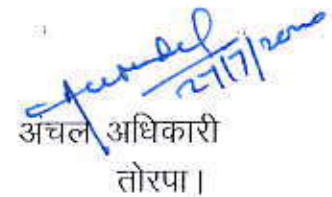 27/7/2020
अंचल अधिकारी
तोरपा।